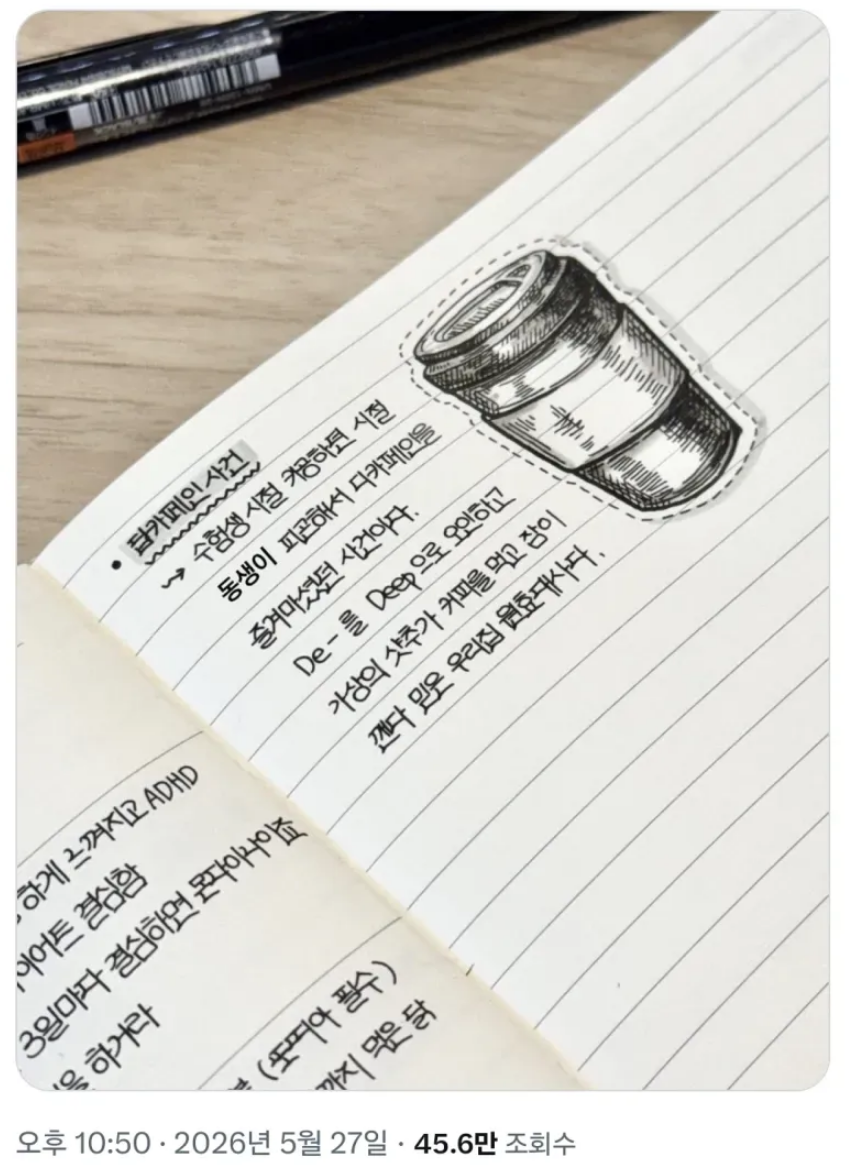 • 탑카페인 사건
→ 수험생 시절 카공하던 시절
동생이 피곤해서 디카페인을
즐겨마셨던 사건이다.
De-를 Deep으로 오인하고
가상의 샷추가 커피를 먹고 잠이
깬다 믿은 우리집 원효대사다.
하게 느껴지고 ADHD
이어트 결심함
3일마다 결심하면 된다이나이죠
을 하거라
(또띠아 필수)
까지 먹은 닭
오후 10:50 · 2026년 5월 27일 · 45.6만 조회수